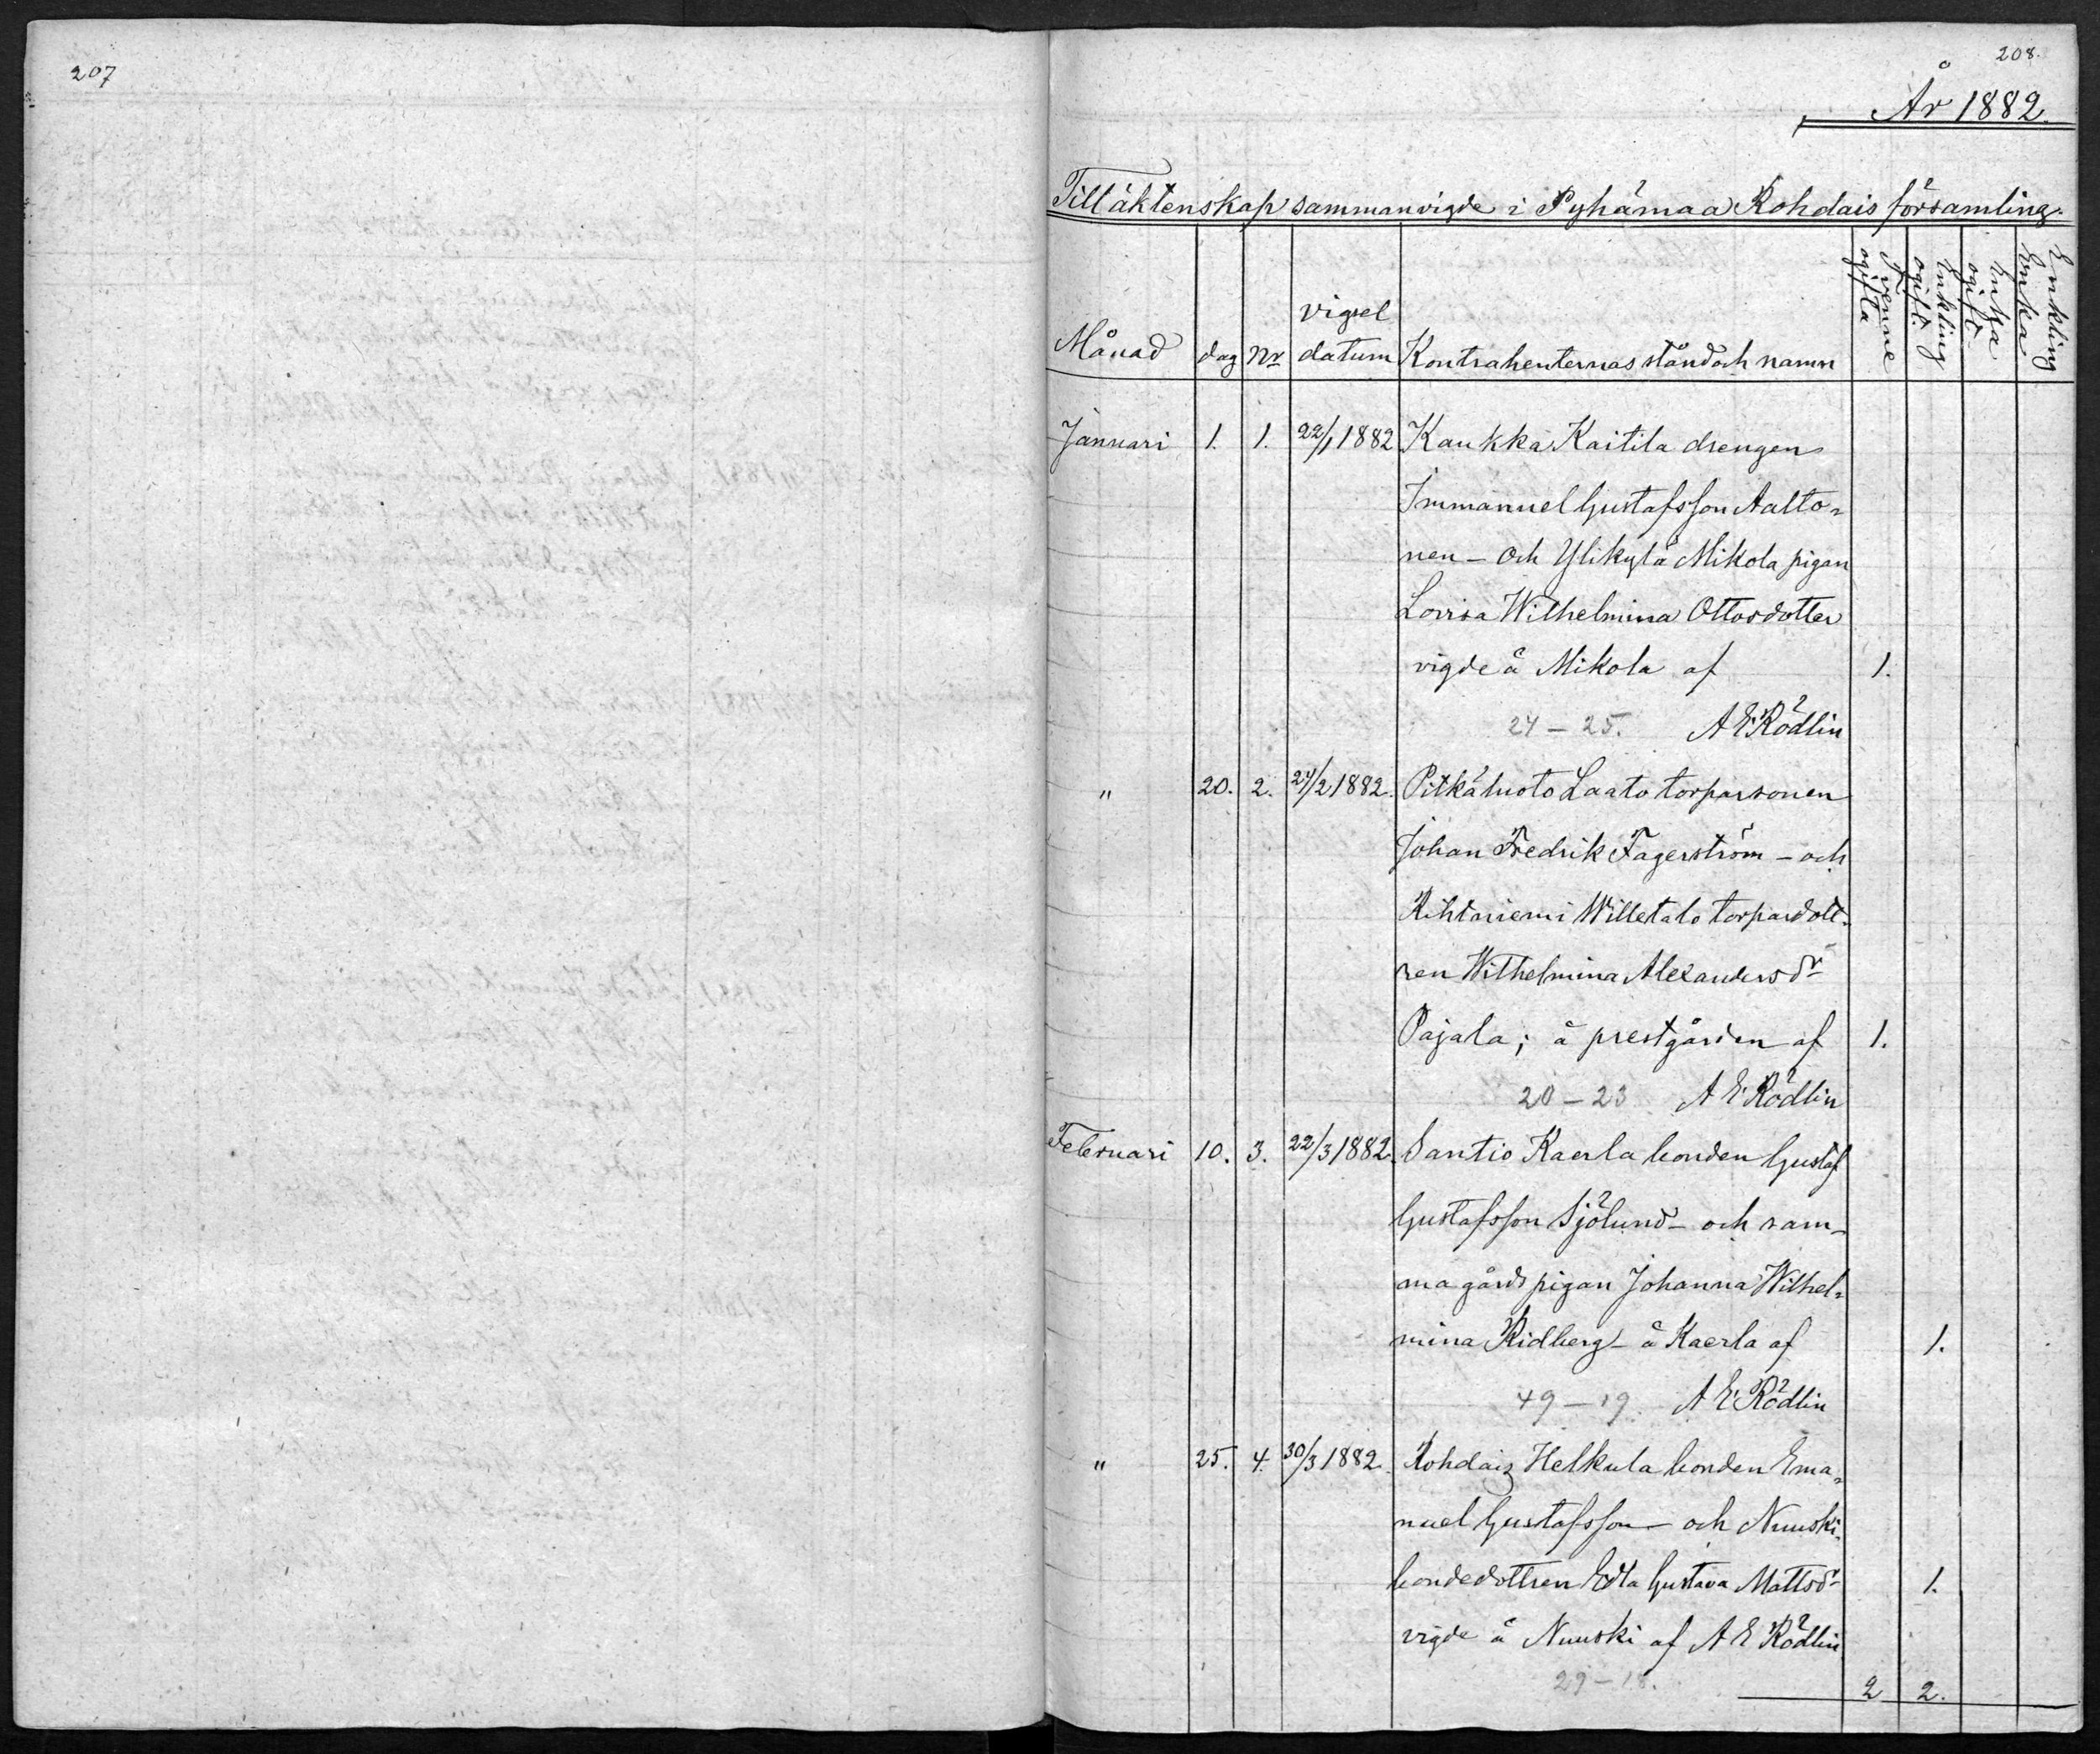 207
208.
År 1882.
Till äktenskap sammanvigde i Pyhämaa Rohdais församling.
Månad dag Nr vigsel datum Kontrahenternas stånd och namn Tvenne ogifta Enkling ogift. Enka ogift Enkling Enka
Januari 1. 1. 22/1 1882 Kaukka Kaitila drengen
Immanuel Gustafsson Aalto-
nen - och Ylikylä Mikola pigan
Lovisa Wilhelmina Ottosdotter
vigde å Mikola af 1.
24 - 25. A E Rödlin
" 20. 2. 24/2 1882. Pitkäluoto Laato torparsonen
Johan Fredrik Fagerström - och
Rihtniemi Willetalo torpardott-
ren Wilhelmina Alexandersdr
Pajala; å prestgården af 1.
20 - 23 A E Rödlin
Februari 10. 3. 22/3 1882. Santio Kaerla bonden Gustaf
Gustafsson Sjölund - och sam-
ma gårds pigan Johanna Wilhel-
mina Ridberg - å Kaerla af 1.
49 - 19. A E Rödlin
" 25. 4. 30/3 1882. Rohdais Helkula bonden Ema-
nuel Gustafsson - och Nuuski
bondedottren Edla Gustava Mattsdr 1.
vigde å Nuuski af A E Rödlin
29 - 18.
2 2.